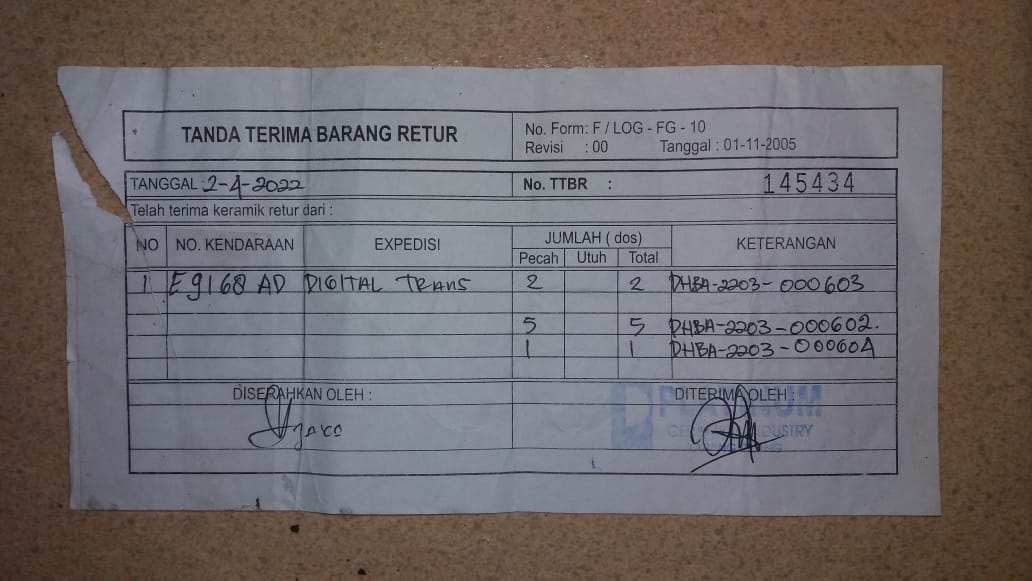 TANDA TERIMA BARANG RETUR
No. Form: F / LOG - FG - 10
Revisi : 00 Tanggal : 01-11-2005
TANGGAL : 2-4-2022 No. TTBR : 145434
Telah terima keramik retur dari :
NO NO. KENDARAAN EXPEDISI JUMLAH ( dos) KETERANGAN
Pecah Utuh Total
1 E 9168 AD DIGITAL TRANS 2 2 DHBA-2203-000603
5 5 DHBA-2203-000602.
1 1 DHBA-2203-000604
DISERAHKAN OLEH : DITERIMA OLEH :
PLATINUM
INDUSTRY